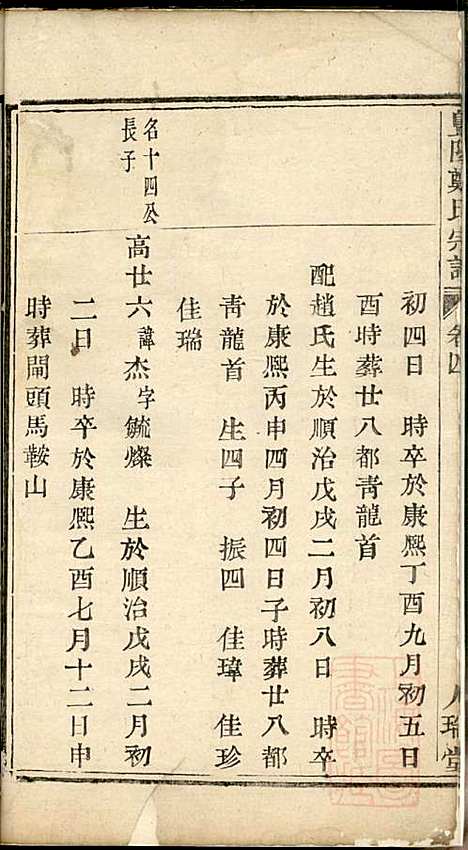 鄭氏宗譜 卷四
初四日 時卒於康熙丁酉九月初五日
酉時葬廿八都青龍首
配趙氏生於順治戊戌二月初八日 時卒
於康熙丙申四月初四日子時葬廿八都
青龍首 生四子 振四 佳瑋 佳珍
佳瑞
名十四公
長子
高廿六 諱杰字毓燦 生於順治戊戌二月初
二日 時卒於康熙乙酉七月十二日申
時葬閘頭馬鞍山